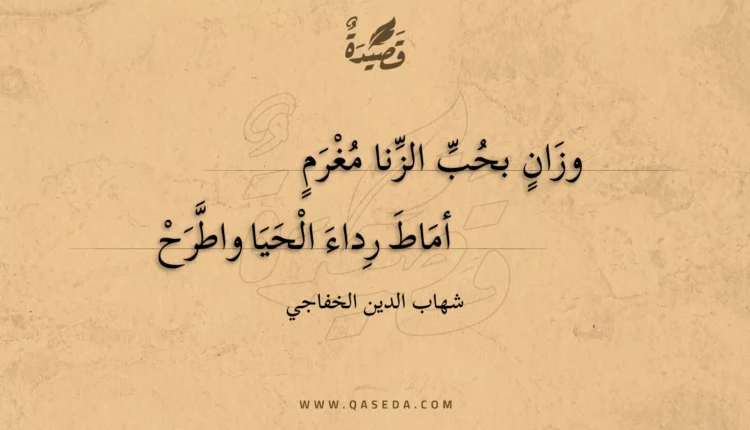 قَصِيْدَةٌ
وزَانٍ بحُبِّ الزِّنا مُغْرَمٍ
أمَاطَ رِداءَ الْحَيَا واطَّرَحْ
شهاب الدين الخفاجي
WWW.QASEDA.COM